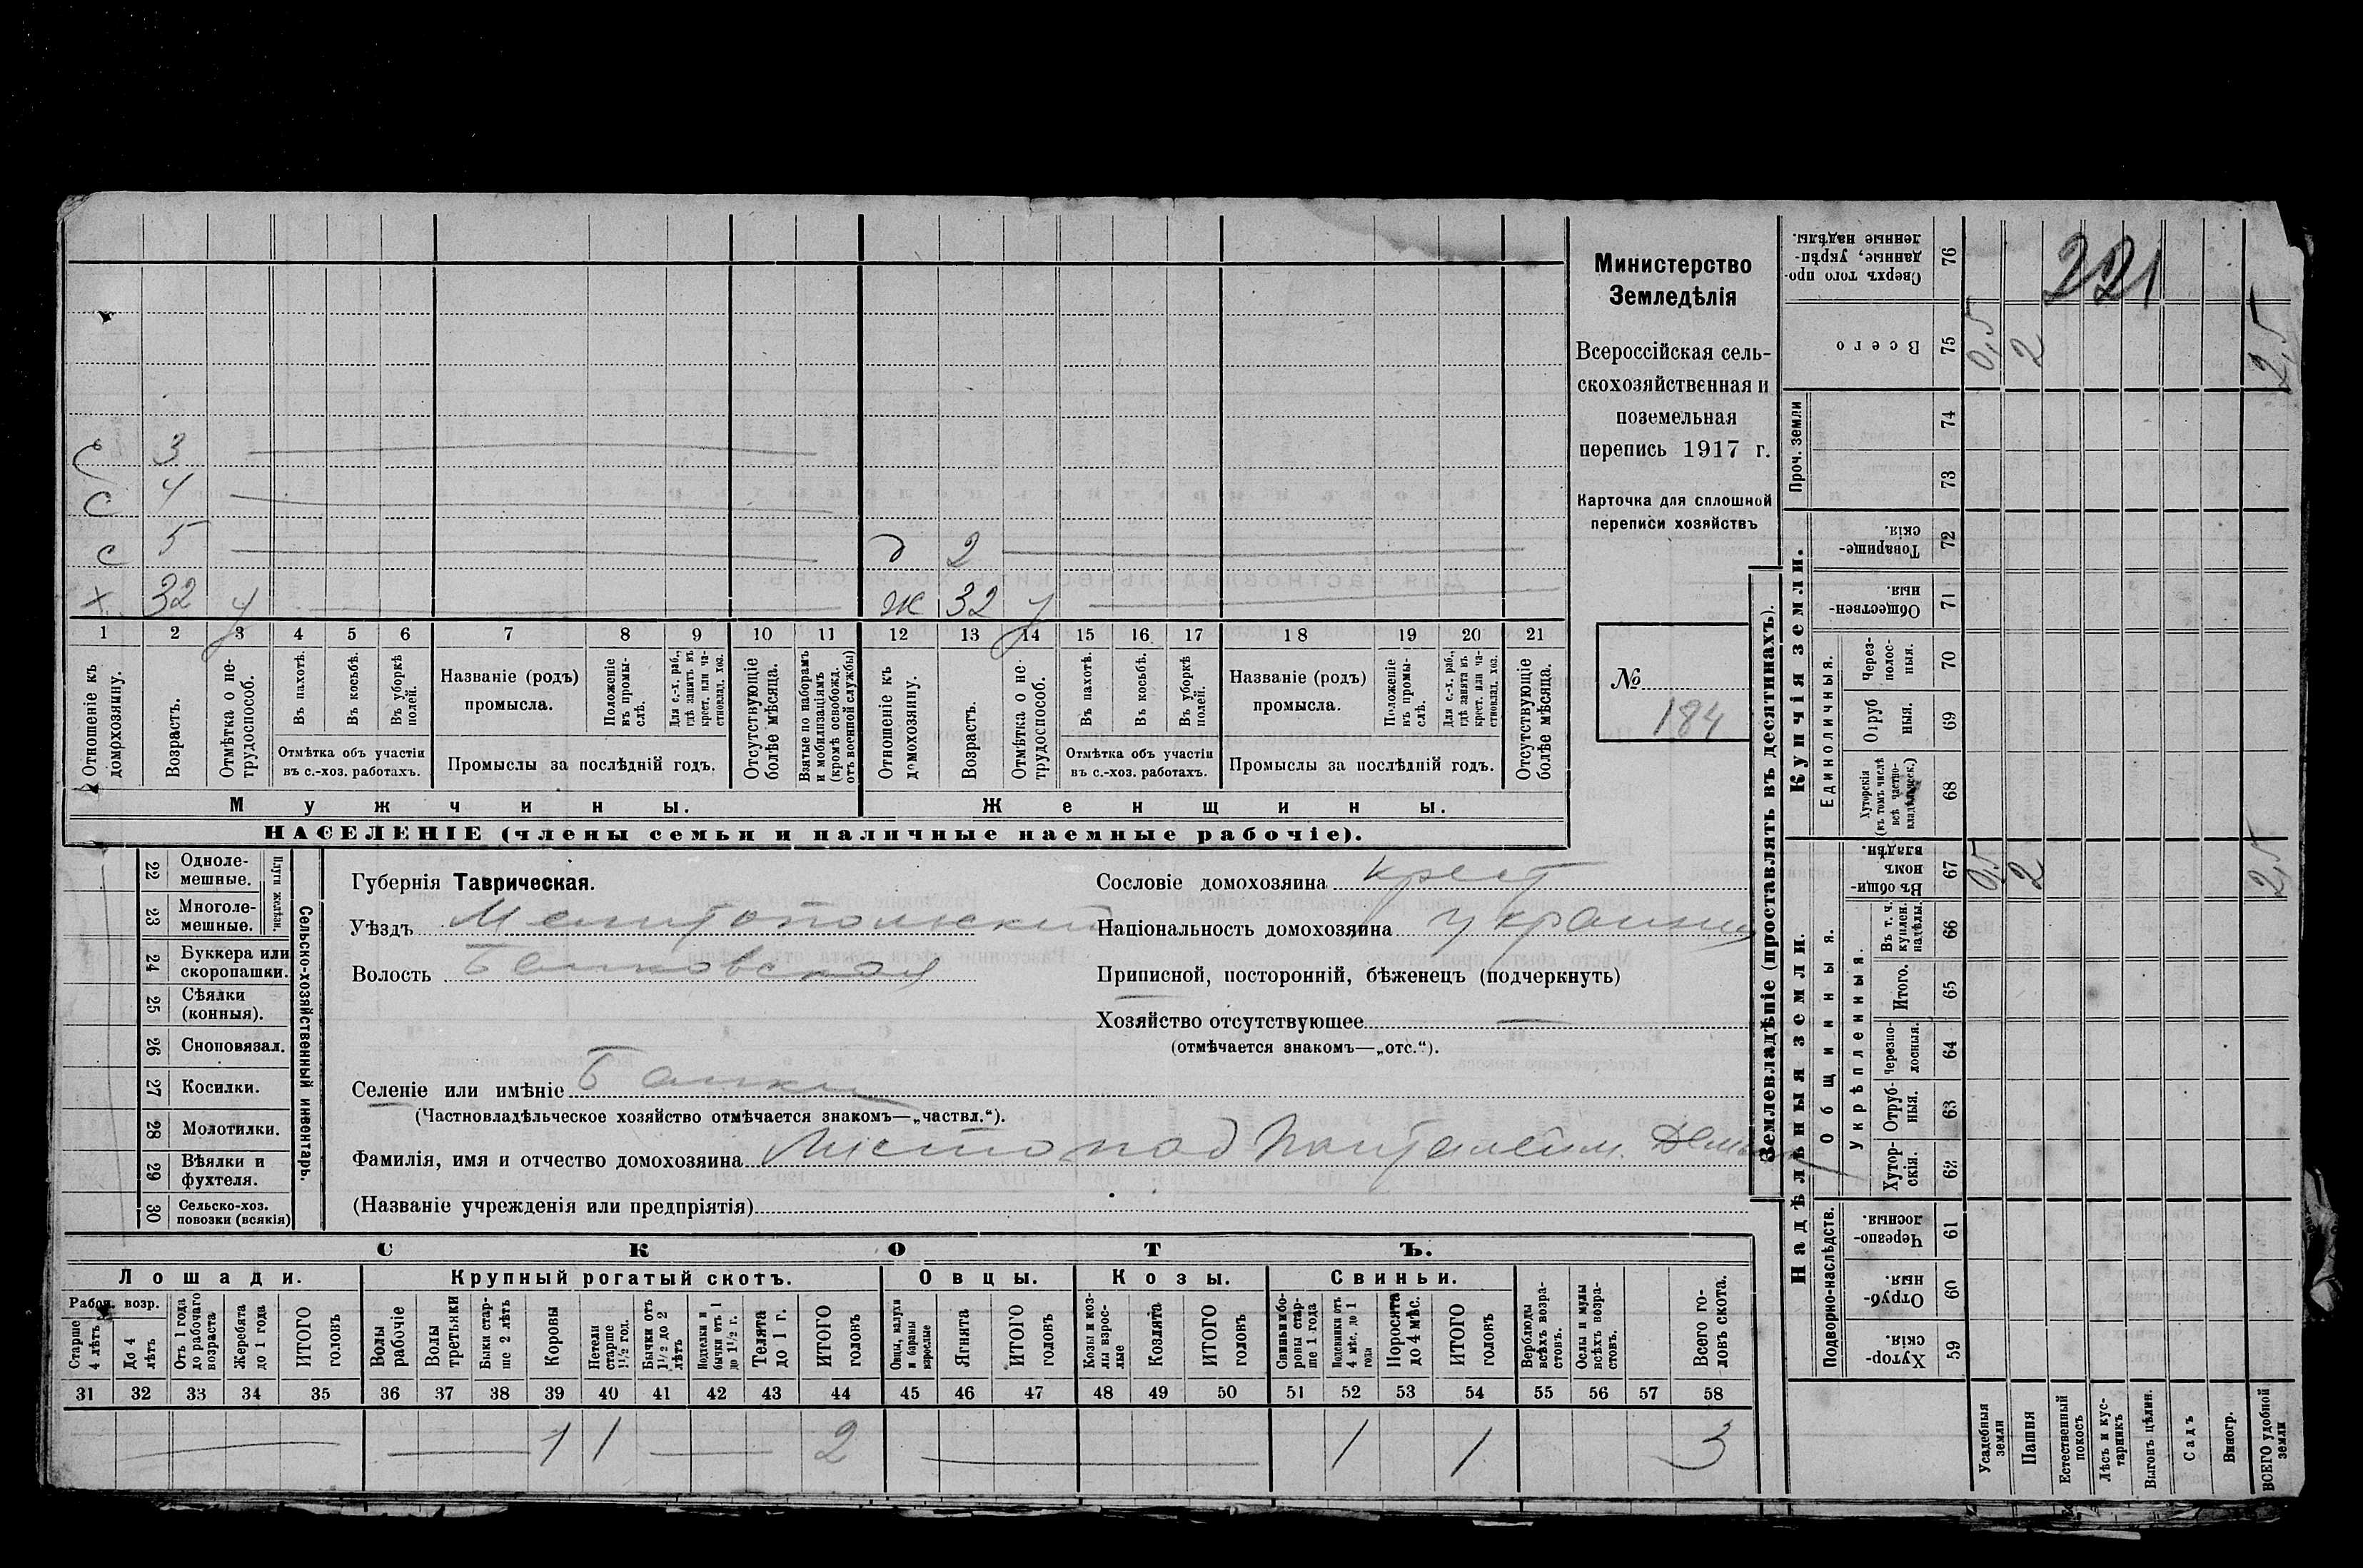 221
Министерство
Земледѣлія
Всероссійская сель-
скохозяйственная и
поземельная
перепись 1917 г.
Карточка для сплошной
переписи хозяйствъ
№ 184
с 3
с 4
с 5 д 2
х 32 у ж 32 у
1 2 3 4 5 6 7 8 9 10 11 12 13 14 15 16 17 18 19 20 21
Отношеніе къ домохозяину.
Возрастъ.
Отмѣтка о не-трудоспособ.
Въ пахотѣ.
Въ косьбѣ.
Въ уборкѣ полей.
Отмѣтка объ участіи
въ с.-хоз. работахъ.
Названіе (родъ)
промысла.
Положеніе въ промы-слѣ.
Для с.-х. раб., гдѣ занятъ въ крест. или ча-стновлад. хоз.
Промыслы за послѣдній годъ.
Отсутствующіе болѣе мѣсяца.
Взятые по наборамъ и мобилизаціямъ (кромѣ освобожд. отъ военной службы)
Отношеніе къ домохозяину.
Возрастъ.
Отмѣтка о не-трудоспособ.
Въ пахотѣ.
Въ косьбѣ.
Въ уборкѣ полей.
Отмѣтка объ участіи
въ с.-хоз. работахъ.
Названіе (родъ)
промысла.
Положеніе въ промы-слѣ.
Для с.-х. раб., гдѣ занята въ крест. или ча-стновлад. хоз.
Промыслы за послѣдній годъ.
Отсутствующіе болѣе мѣсяца.
Мужчины. Женщины.
НАСЕЛЕНІЕ (члены семьи и наличные наемные рабочіе).
22 Одноле-мешные.
23 Многоле-мешные.
Плуги желѣзн.
24 Буккера или скоропашки.
25 Сѣялки (конныя).
26 Сноповязал.
27 Косилки.
28 Молотилки.
29 Вѣялки и фухтеля.
30 Сельско-хоз. повозки (всякія)
Сельско-хозяйственный инвентарь.
Губернія Таврическая.
Уѣздъ Мелитопольский
Волость Балковская
Селеніе или имѣніе Балки
(Частновладѣльческое хозяйство отмѣчается знакомъ—„частвл.“).
Фамилія, имя и отчество домохозяина Листопад Пантелейм. Демья
(Названіе учрежденія или предпріятія)
Сословіе домохозяина крест
Національность домохозяина украинец
Приписной, посторонній, бѣженецъ (подчеркнуть)
Хозяйство отсутствующее —
(отмѣчается знакомъ—„отс.“).
СКОТЪ.
Лошади. Крупный рогатый скотъ. Овцы. Козы. Свиньи.
Рабоч. возр.
Старше 4 лѣтъ
До 4 лѣтъ
Отъ 1 года до рабочаго возраста
Жеребята до 1 года
ИТОГО головъ
Волы рабочіе
Волы третьяки
Быки стар-ше 2 лѣтъ
Коровы
Нетели старше 1½ год.
Бычки отъ 1½ до 2 лѣтъ
Подтелки и бычки отъ 1 до 1½ г.
Телята до 1 г.
ИТОГО головъ
Овцы, валухи и бараны взрослые
Ягнята
ИТОГО головъ
Козы и коз-лы взрос-лые
Козлята
ИТОГО головъ
Свиньи и бо-ровы стар-ше 1 года
Подсвинки отъ 4 мѣс. до 1 года
Поросята до 4 мѣс.
ИТОГО головъ
Верблюды всѣхъ возра-стовъ.
Ослы и мулы всѣхъ возра-стовъ.
Всего го-ловъ скота.
31 32 33 34 35 36 37 38 39 40 41 42 43 44 45 46 47 48 49 50 51 52 53 54 55 56 57 58
1 1 2 1 1 3
Землевладѣніе (проставлять въ десятинахъ).
Купчія земли.
Надѣльныя земли.
Сверхъ того про-данные, укрѣп-ленные надѣлы. 76
Всего 75 0,5 2 2,5
Проч. земли 74 73
Товарище-скія. 72
Обществен-ныя. 71
Единоличныя.
Через-полос-ныя. 70
Отруб ныя. 69
Хуторскія (въ томъ числѣ всѣ частно-владѣльческ.) 68
Общинныя.
Въ общи-номъ владѣн. 67 0,5 2 2,5
Укрѣпленныя.
Въ т. ч. куплен. надѣлы. 66
Итого. 65
Черезпо-лосныя. 64
Отруб-ныя. 63
Хутор-скія. 62
Подворно-наслѣдств.
Черезпо-лосныя. 61
Отруб-ныя. 60
Хутор-скія. 59
Усадебныя земли
Пашня
Естественный покосъ
Лѣсъ и кус-тарникъ
Выгонъ цѣлин.
Садъ
Виногр.
ВСЕГО удобной земли